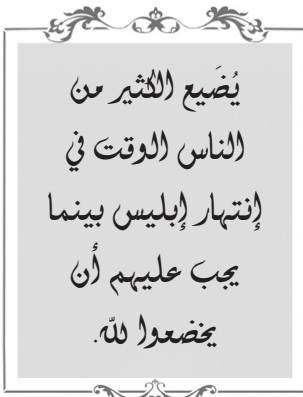 يُضَيع الكثير من
الناس الوقت في
إنتهار إبليس بينما
يجب عليهم أن
يخضعوا لله.